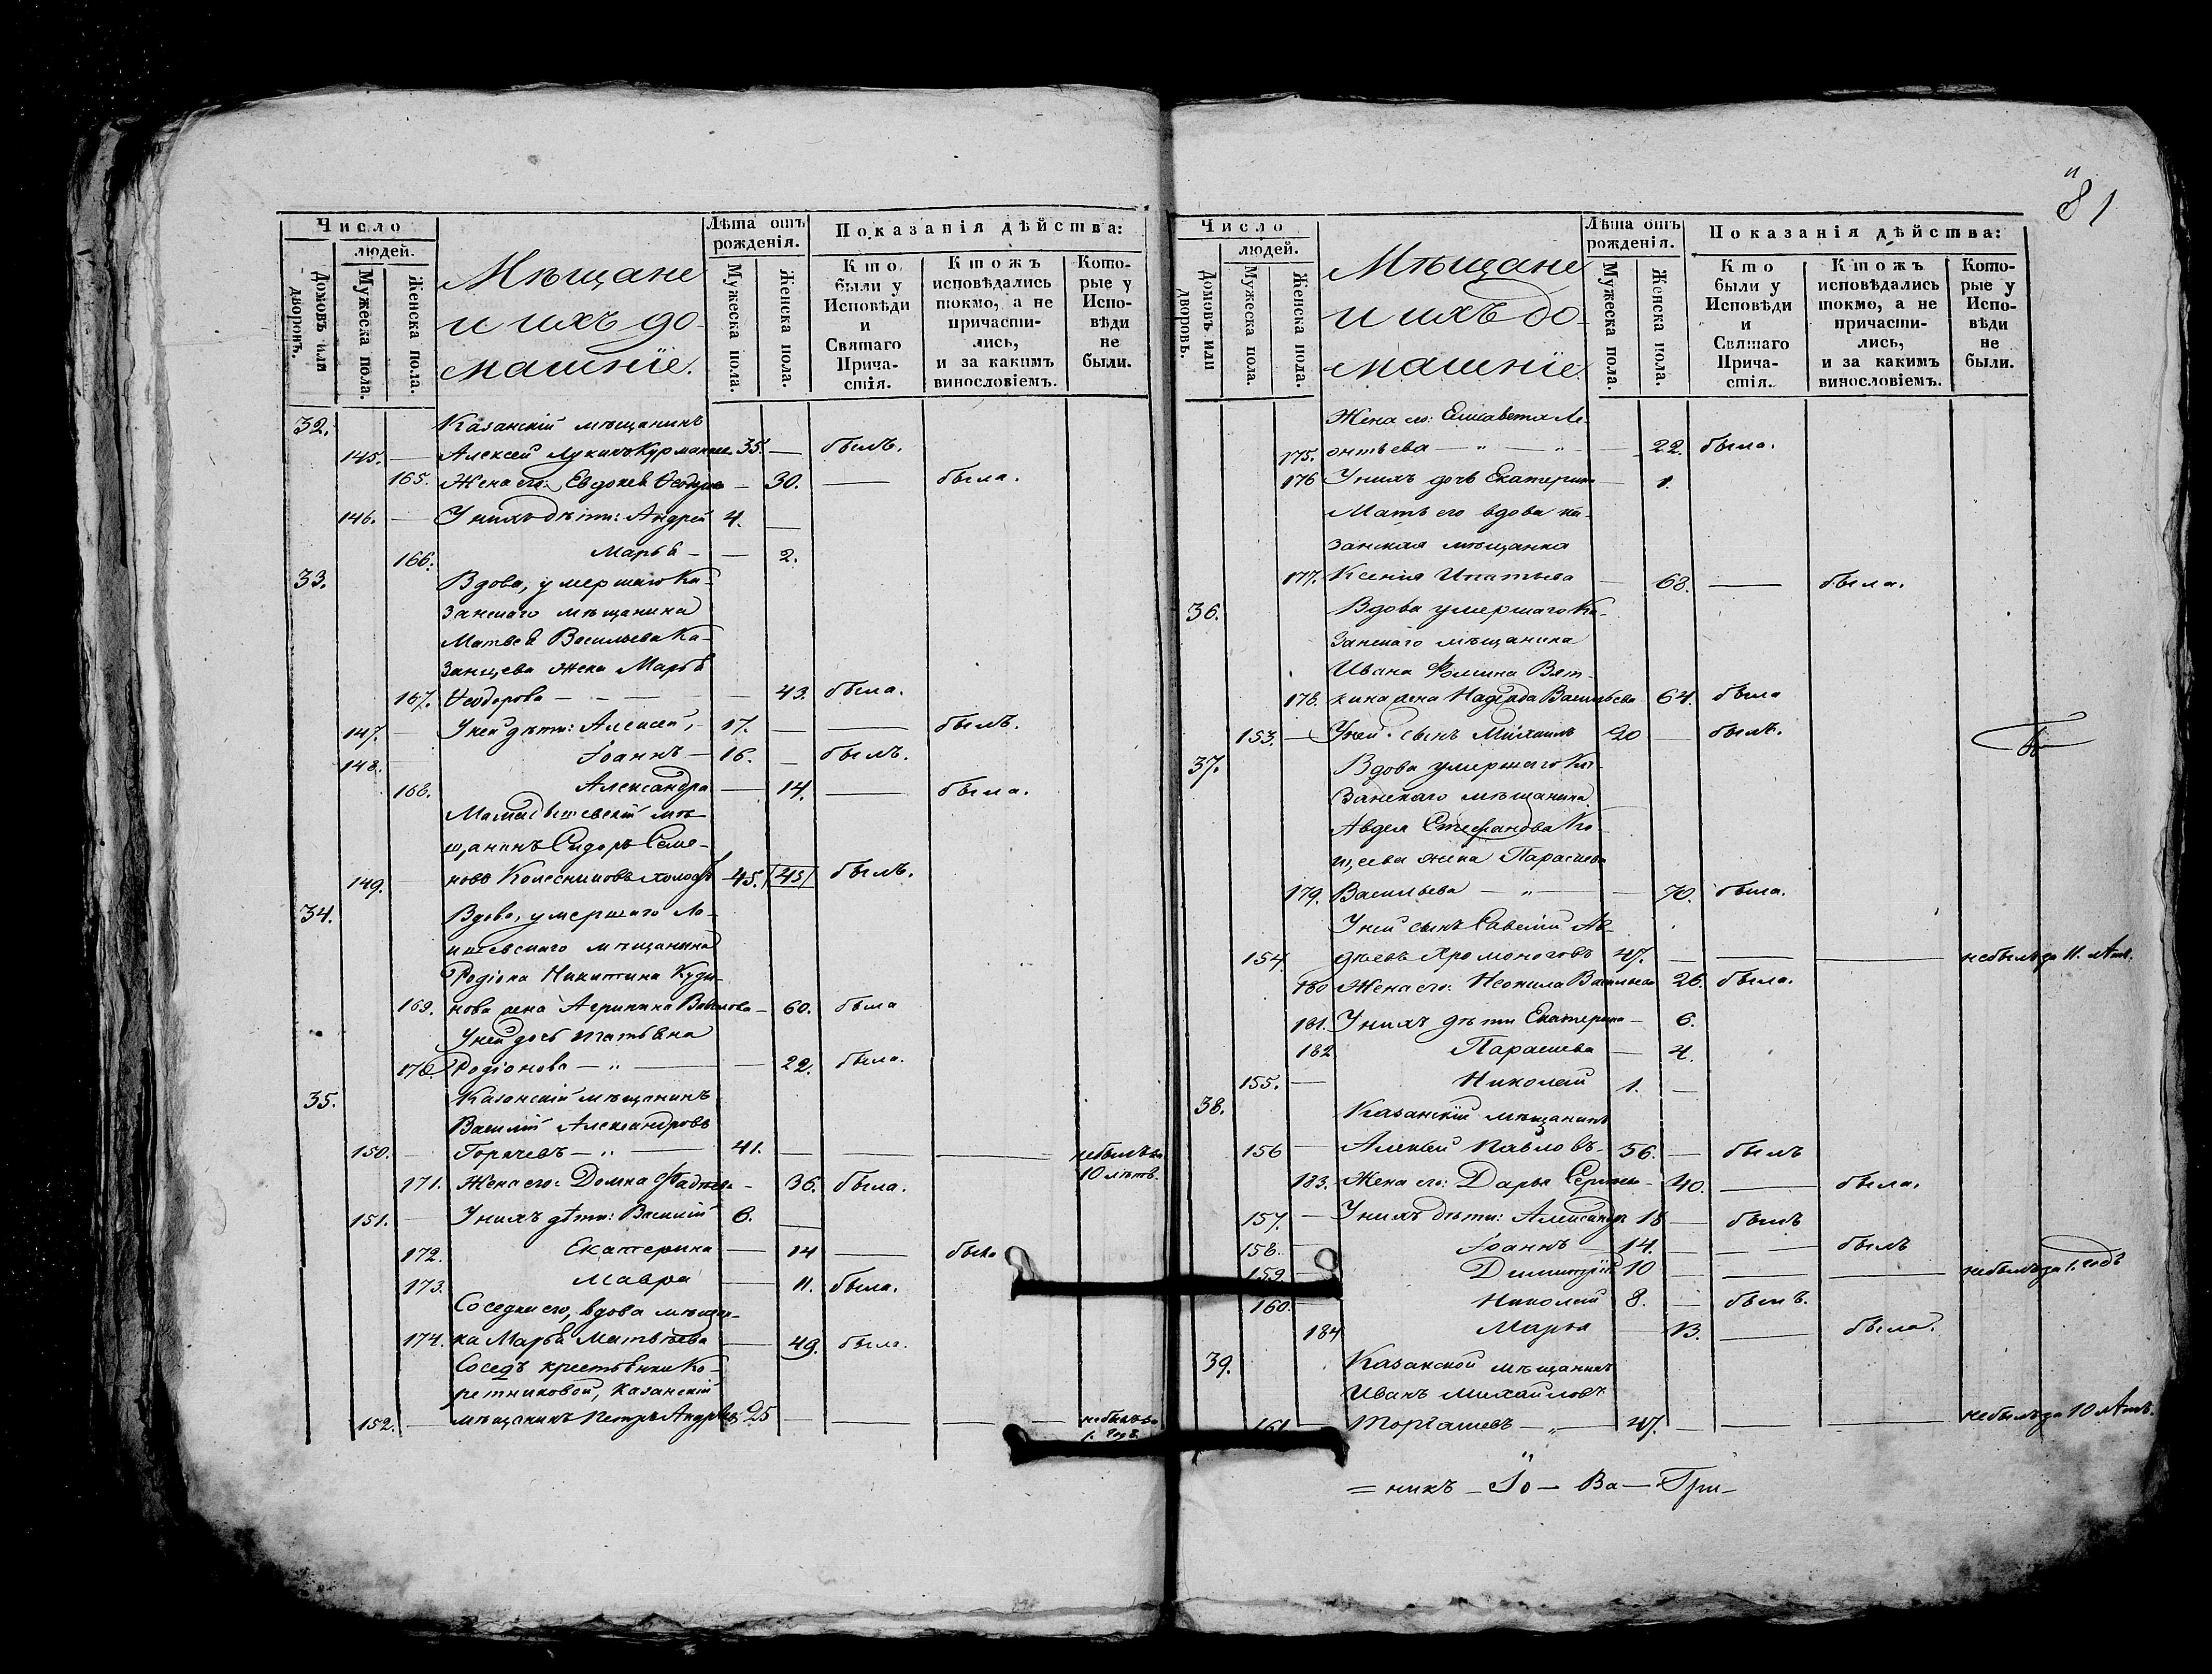 Число
людей.
Домовъ или дворовъ.
Мужеска пола.
Женска пола.
Мѣщане
и ихъ до-
машніе.
Лѣта отъ
рожденія.
Мужеска пола.
Женска пола.
Показанія дѣйства:
Кто
были у
Исповѣди
и
Святаго
Прича-
стія.
Ктожъ
исповѣдались
токмо, а не
причасти-
лись,
и за какимъ
винословіемъ.
Кото-
рые у
Испо-
вѣди
не
были.
32. Казанскій мѣщанинъ
145. — Алексей Лукинъ 35. — былъ.
165. Жена его: — 30. — была.
146. — У нихъ дѣти: Андрей 4. —
166. Марья — — 2.
33. Вдова, умершаго Ка-
занскаго мѣщанина
Васильева Ка-
занцева жена Марья
167. Ѳеодорова — — — 43. была.
147. — У ней дѣти: Алексей, 17. — — былъ.
148. — Іоаннъ — 16. — былъ.
168. Александра — 14. — была.
мѣ-
щанинъ Сидоръ Семе-
149. — новъ Колесниковъ 45. 45 былъ.
34. Вдова, умершаго Ла-
ишевскаго мѣщанина
Родіона Никитина
169. нова жена Агрипина — 60. была
У ней дочь Татьяна
170. Родіонова — „ — — 22. была.
35. Казанскій мѣщанинъ
Василій Александровъ
150. — Горячевъ — „ — 41. — — — небылъ
10 лѣтъ.
171. Жена его: Домна — 36. была.
151. — У нихъ дѣти: Василій 6. —
172. Екатерина — 14 — была
173. Мавра — 11. была.
Соседка его, вдова мѣщан-
174. ка Марья Матвѣева — 49. была.
Соседъ Ко-
ретниковой, Казанскій
152. — мѣщанинъ Петръ 25 — — — небылъ
1. годъ.
81
Число
людей.
Домовъ или дворовъ.
Мужеска пола.
Женска пола.
Мѣщане
и ихъ до-
машніе.
Лѣта отъ
рожденія.
Мужеска пола.
Женска пола.
Показанія дѣйства:
Кто
были у
Исповѣди
и
Святаго
Прича-
стія.
Ктожъ
исповѣдались
токмо, а не
причасти-
лись,
и за какимъ
винословіемъ.
Кото-
рые у
Испо-
вѣди
не
были.
Жена его: Елисавета Ле-
175. онтьева — „ — „ — 22. была.
176 У нихъ дочь Екатерина — 1.
Мать его вдова ка-
занская мѣщанка
177. Ксенія Ипатьева — 68. — была.
36. Вдова умершаго Ка-
занскаго мѣщанина
Ивана Фомина Вят-
178. кина жена Надежда Васильева 64. была
153. — У ней сынъ Михаилъ 20 — былъ.
37. Вдова умершаго Ка-
занскаго мѣщанина
Авдея Стефанова
жена Параскева
179. Васильева — „ — — 70. была.
У ней сынъ Савелій Ав-
154. дѣевъ Хромоноговъ 47. — — — небылъ за 11. лѣтъ.
180 Жена его: Неонила Васильева 26. была.
181. У нихъ дѣти Екатерина — 6.
182. Параскева — 4.
155. — Николай 1. —
38. Казанскій мѣщанинъ
156 — Алексей Павловъ — 56. — былъ
183. Жена его: Дарья — 40. — была.
157. — У нихъ дѣти: Александръ 18 — былъ
158. — Іоаннъ — 14. — — былъ
159 — Димитрій 10 — — — небылъ за 1. годъ
160. — Николай 8. — былъ.
184 Марья — 13. — была.
39. Казанской мѣщанинъ
Иванъ Михайловъ
161 — Торгашевъ — „ — 47. — — — небылъ за 10 лѣтъ.
= никъ — Іо — Ва — Гри —